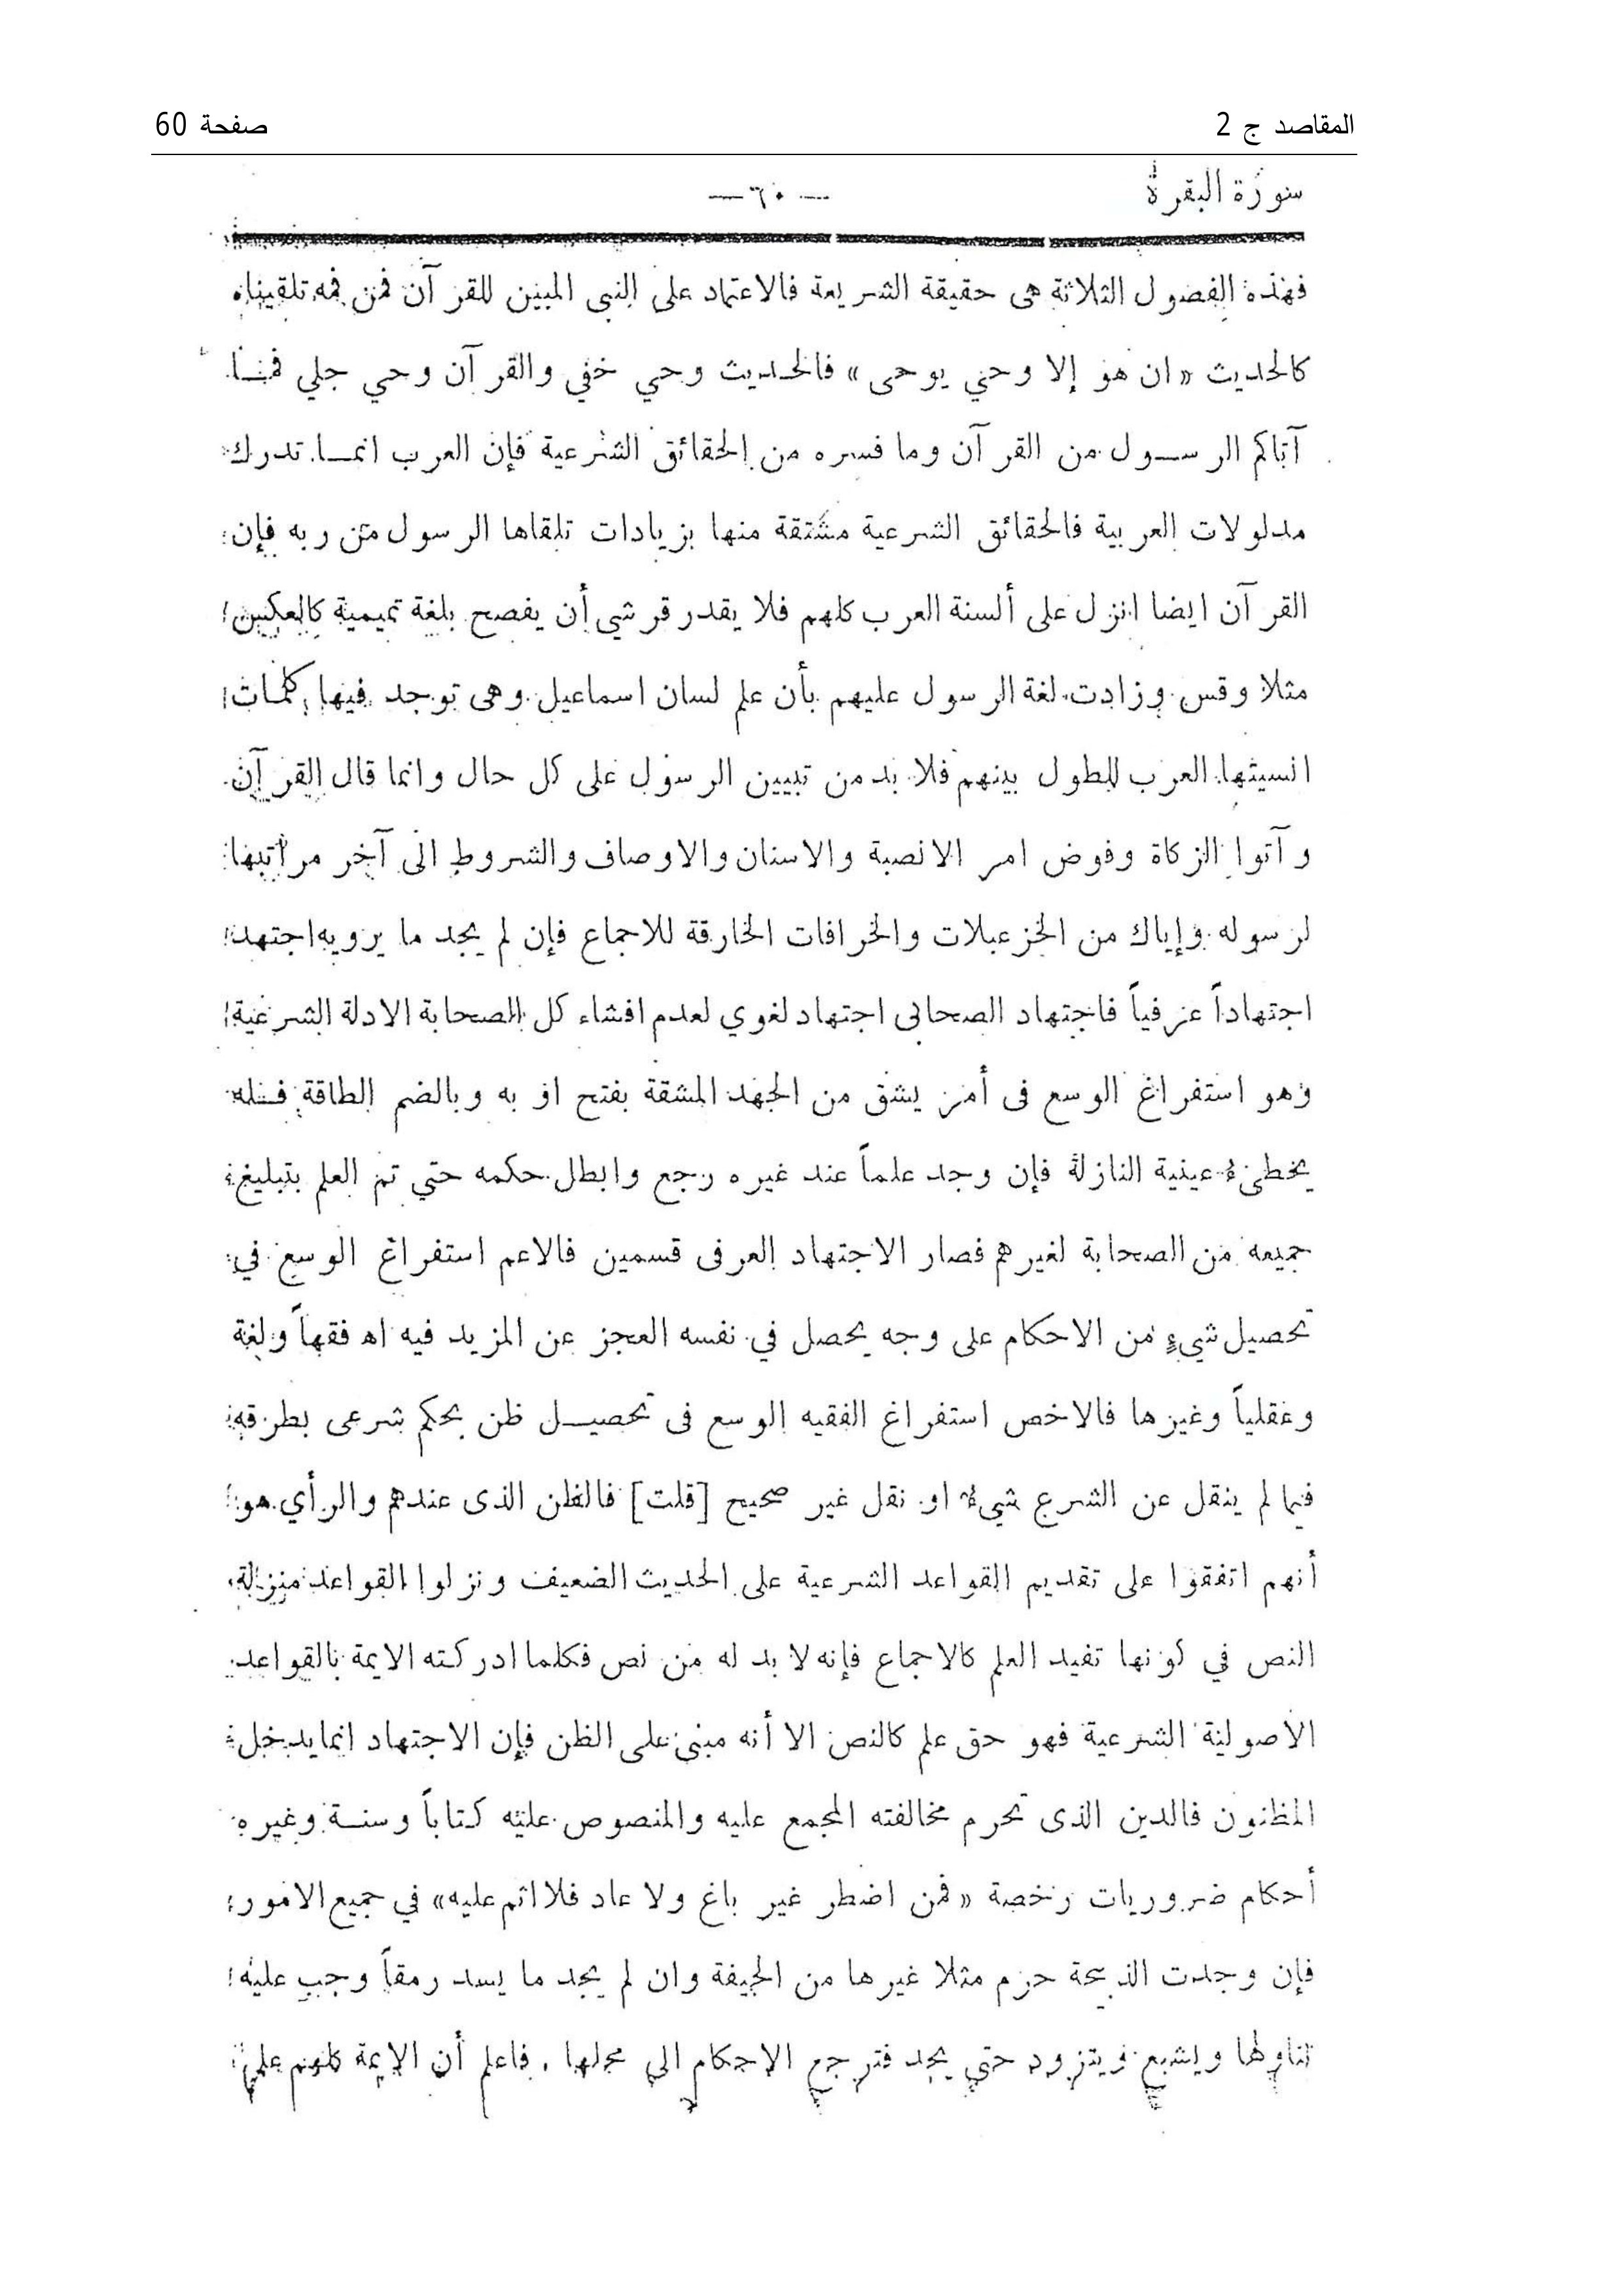 المقاصد ج 2
صفحة 60
سورة البقرة
— ٦٠ —
فهذه الفصول الثلاثة هى حقيقة الشريعة فالاعتماد على النبى المبين للقرآن فمن فمه تلقيناه
كالحديث «ان هو إلا وحي يوحى» فالحديث وحي خفي والقرآن وحي جلي فمـا
آتاكم الرسـول من القرآن وما فسره من الحقائق الشرعية فإن العرب انمـا تدرك
مدلولات العربية فالحقائق الشرعية مشتقة منها بزيادات تلقاها الرسول من ربه فإن
القرآن ايضا انزل على ألسنة العرب كلهم فلا يقدر قرشي أن يفصح بلغة تميمية كالعكس
مثلا وقس وزادت لغة الرسول عليهم بأن علم لسان اسماعيل وهى توجد فيها كلمات
انسيتها العرب للطول بينهم فلا بد من تبيين الرسول على كل حال وانما قال القرآن
وآتوا الزكاة وفوض امر الانصبة والاسنان والاوصاف والشروط الى آخر مراتبها
لرسوله وإياك من الخزعبلات والخرافات الخارقة للاجماع فإن لم يجد ما يرويه اجتهد
اجتهاداً عرفياً فاجتهاد الصحابى اجتهاد لغوي لعدم افشاء كل الصحابة الادلة الشرعية
وهو استفراغ الوسع فى أمر يشق من الجهد المشقة بفتح اوله وبالضم الطاقة
يخطىء عينية النازلة فإن وجد علماً عند غيره رجع وابطل حكمه حتي تم العلم بتبليغ
جميعه من الصحابة لغيرهم فصار الاجتهاد العرفى قسمين فالاعم استفراغ الوسع في
تحصيل شيءٍ من الاحكام على وجه يحصل في نفسه العجز عن المزيد فيه اه فقهاً ولغة
وعقلياً وغيرها فالاخص استفراغ الفقيه الوسع فى تحصيـل ظن بحكم شرعى بطرقه
فيما لم ينقل عن الشرع شيء او نقل غير صحيح [قلت] فالظن الذى عندهم والرأي هو
أنهم اتفقوا على تقديم القواعد الشرعية على الحديث الضعيف ونزلوا القواعد منزلة
النص في كونها تفيد العلم كالاجماع فإنه لا بد له من نص فكلما ادركته الايمة بالقواعد
الاصولية الشرعية فهو حق علم كالنص الا أنه مبنى على الظن فإن الاجتهاد انما يدخل
المظنون فالدين الذى تحرم مخالفته المجمع عليه والمنصوص عليه كتاباً وسنـة وغيره
أحكام ضروريات رخصة «فمن اضطر غير باغ ولا عاد فلا اثم عليه» في جميع الامور
فإن وجدت الذبيحة حرم مثلا غيرها من الجيفة وان لم يجد ما يسد رمقاً وجب عليه
تناولها ويشبع ويتزود حتي يجد فترجع الاحكام الى محلها . فاعلم أن الايمة كلهم على